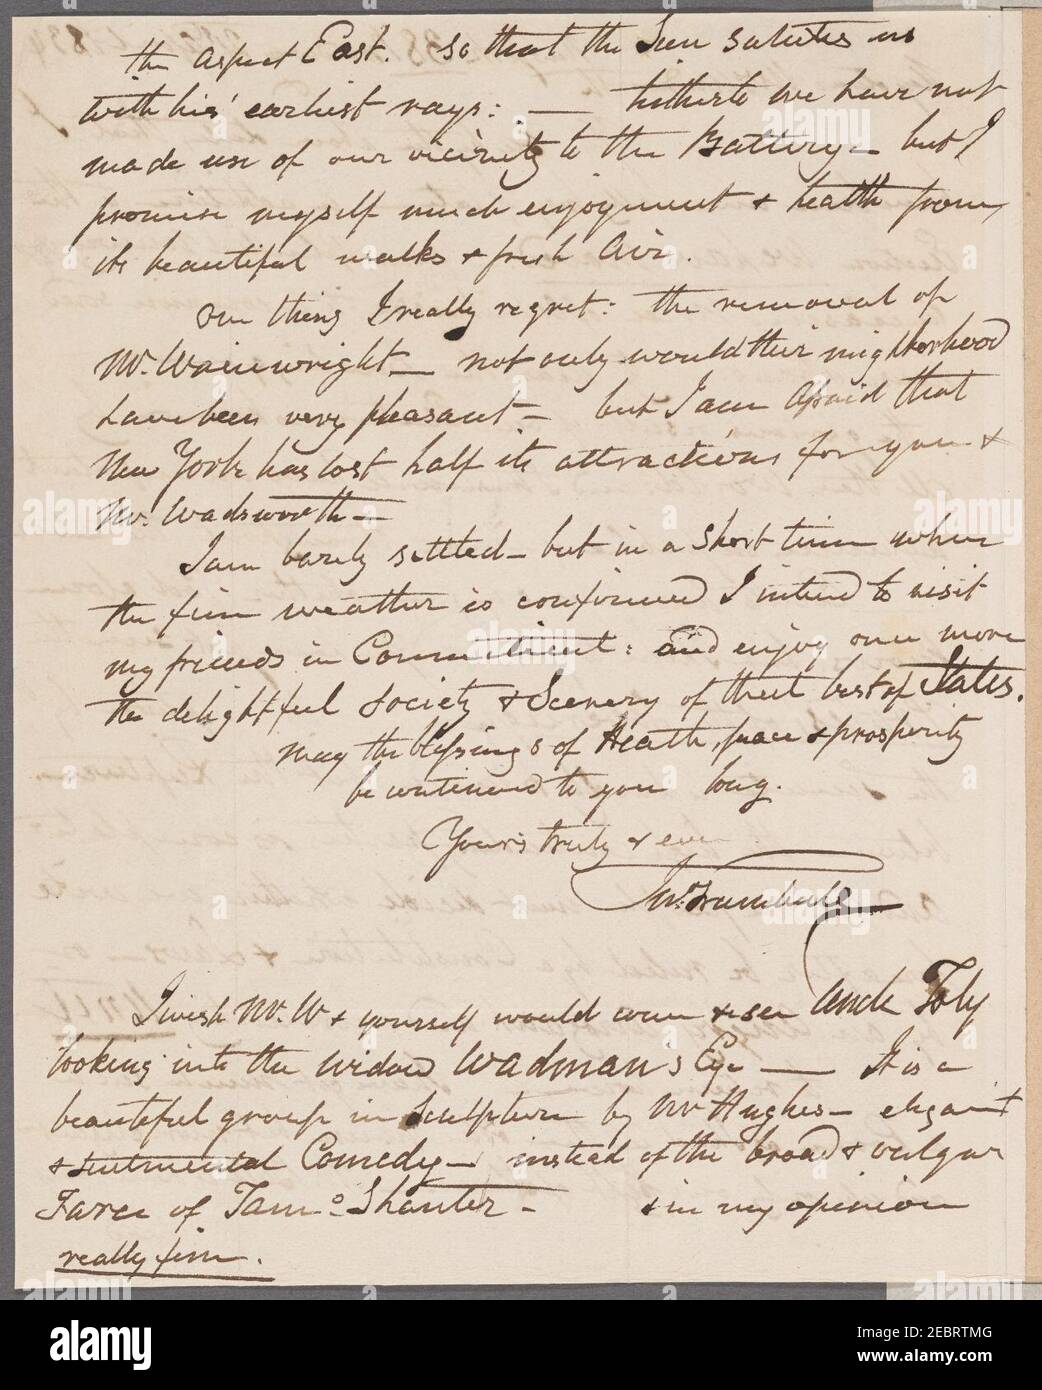 the aspect East. so that the Sun salutes us
with his' earliest rays: — hitherto we have not
made use of our vicinity to the Battery – but I
promise myself much enjoyment & health from
its beautiful walks & fresh Air.
One thing I really regret: the removal of
Mr. Wainwright – not only would their neighborhood
have been very pleasant – but I am afraid that
New York has lost half its attractions for you &
Mr. Wadsworth –
I am barely settled – but in a short time when
the fine weather is confirmed I intend to visit
my friends in Connecticut: and enjoy once more
the delightful society & Scenery of that best of States.
May the blessings of Health, peace & prosperity
be continued to you long.
Yours truly & ever
Jno. Trumbull
I wish Mr. W & yourself would come & see Uncle Toby
looking into the Widow Wadman's Eye — It is a
beautiful group in Sculpture by Mr Hughes – elegant
& sentimental Comedy – instead of the broad & vulgar
Farce of Tam o Shanter – & in my opinion
really fine.
alamy
alamy
Image ID: 2EBRTMG
www.alamy.com